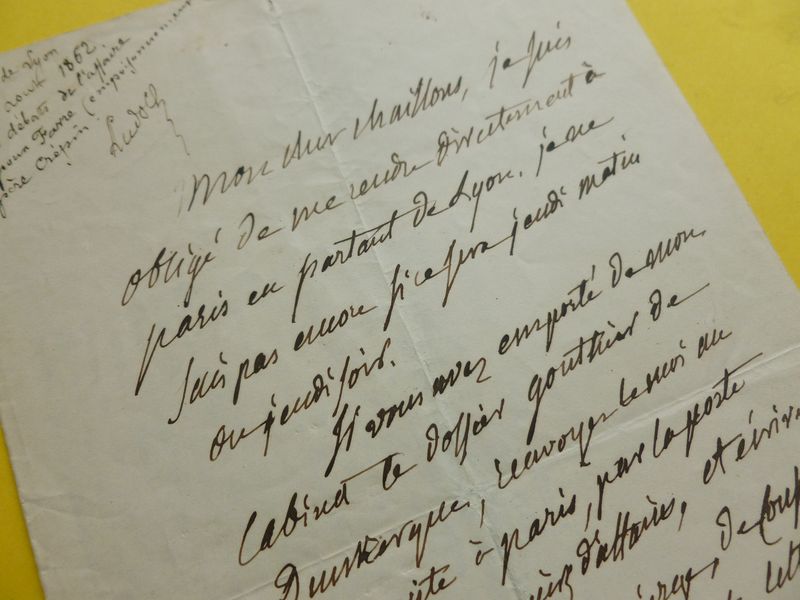 de Lyon
août 1862
débats de l'affaire
pour Favre (emprisonnement
père Crépin
Mon cher Chaillons, je suis
obligé de me rendre directement à
paris en partant de Lyon. je ne
sais pas encore si ce sera jeudi matin
ou jeudi soir.
Si vous avez emporté de mon
Cabinet le dossier gouthier de
Dunkerque, renvoyez le moi au
à paris, par la poste
d'affaires, et écrire
de